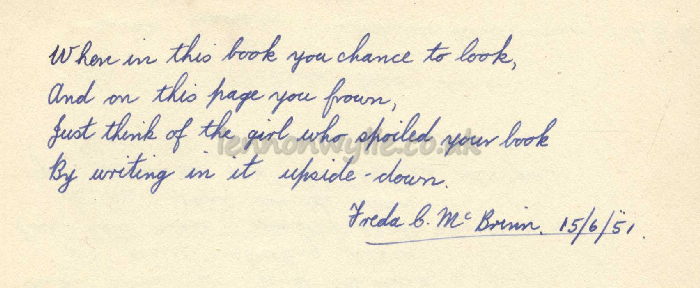 When in this book you chance to look,
And on this page you frown,
Just think of the girl who spoiled your book
lennonwylie.co.uk
By writing in it upside-down.
Freda C. Mc Brinn. 15/6/51.